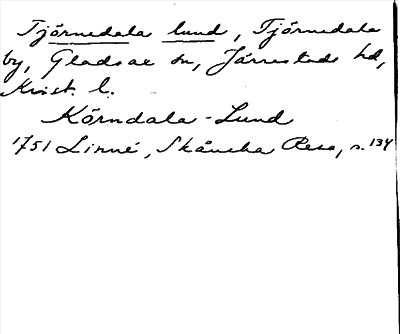 Tjörnedala lund, Tjörnedala
by, Gladsax sn, Järrestads hd,
Krist. l.
Körndala-Lund
1751 Linné, Skånska Resa, s. 134